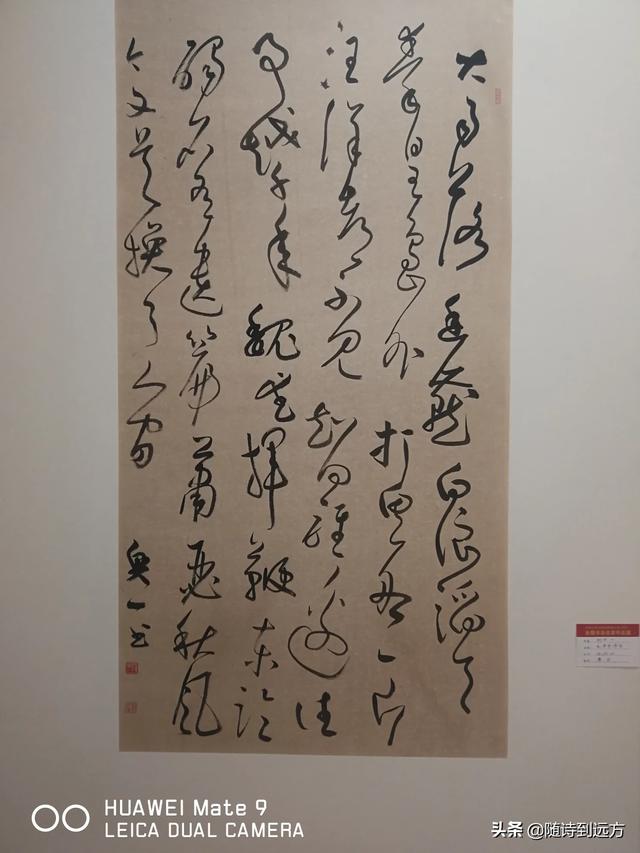 大雨落幽燕白浪滔天
秦皇島外打魚船一片
汪洋都不見知向誰邊往
事越千年魏武揮鞭東臨
碣石有遺篇蕭瑟秋風
今又是換了人間
一书
HUAWEI Mate 9
LEICA DUAL CAMERA
头条 @随诗到远方